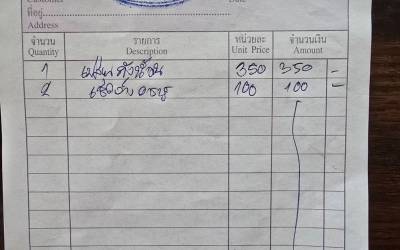 Customer Date
ที่อยู่
Address
จำนวน รายการ หน่วยละ จำนวนเงิน
Quantity Description Unit Price Amount
1 350 350 -
2 100 100 -